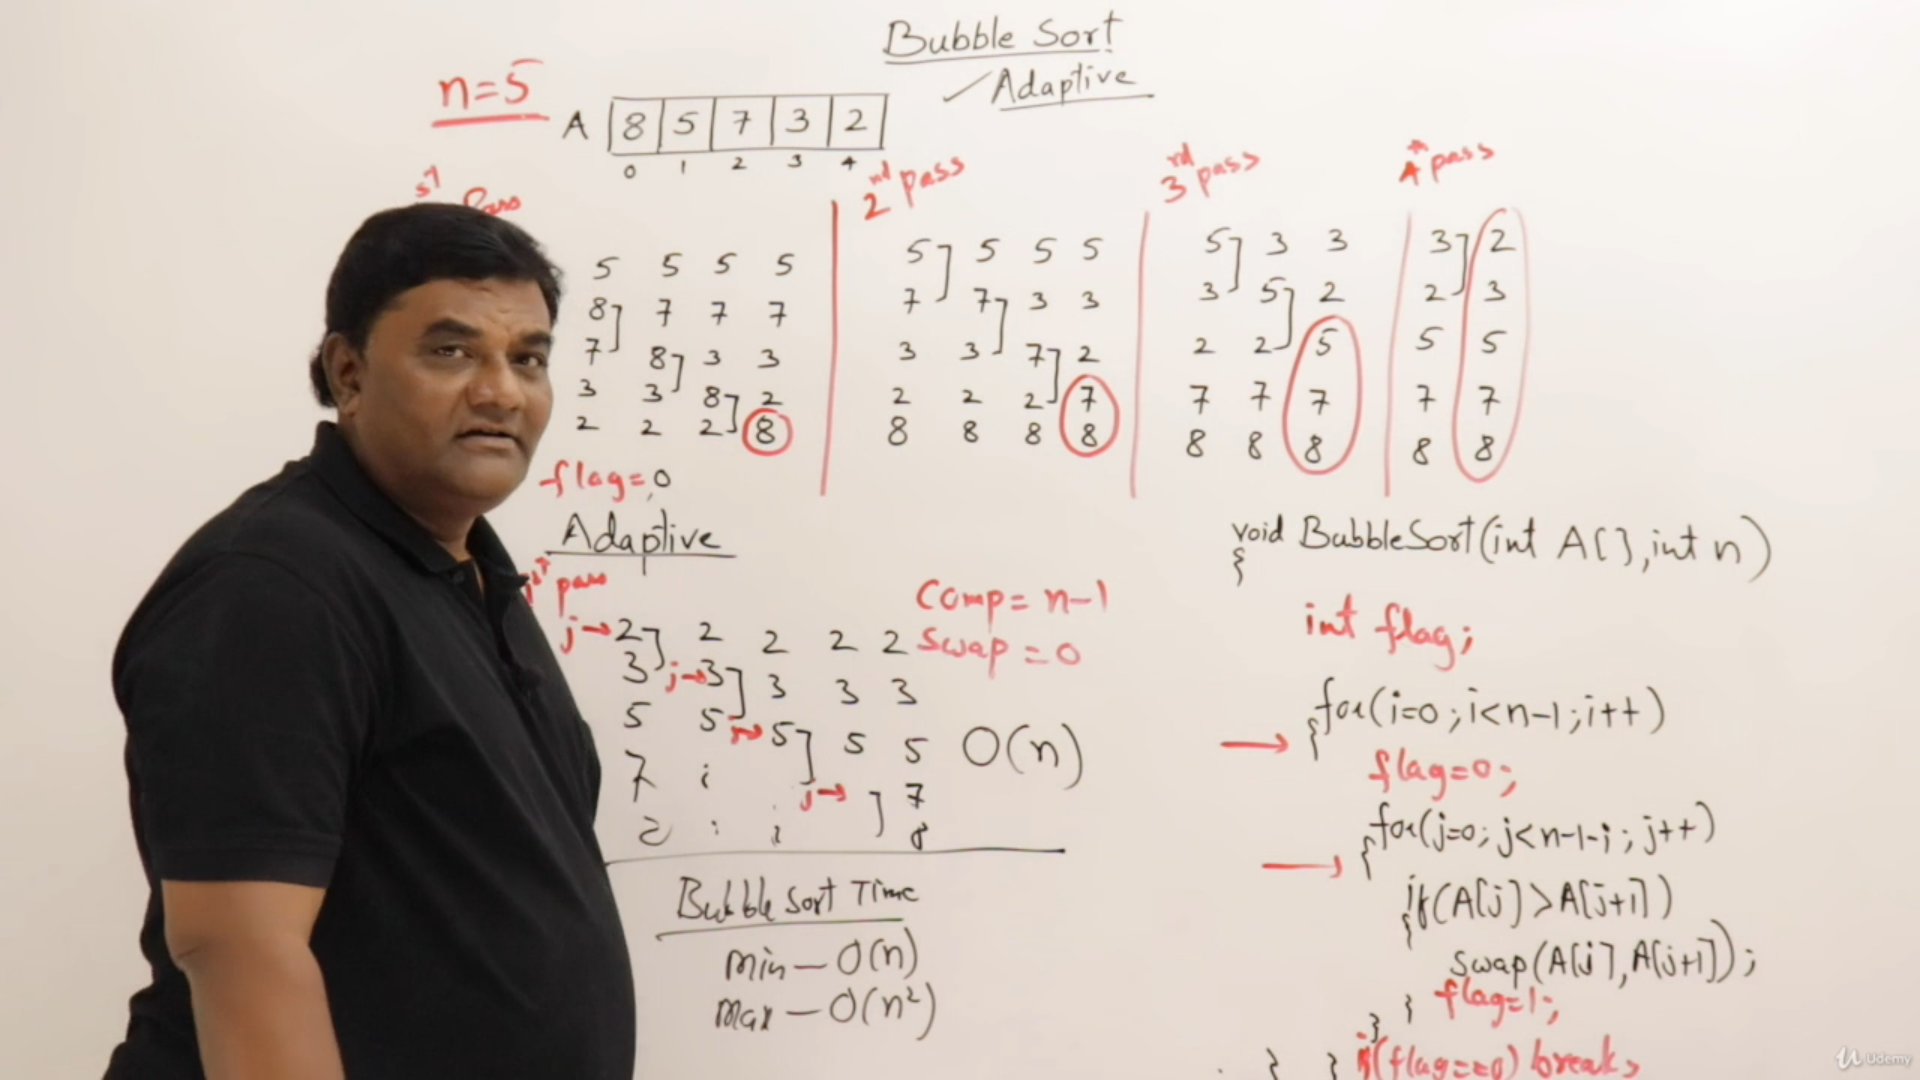 Bubble Sort
✓ Adaptive
n=5
A 8 5 7 3 2
0 1 2 3 4
st Pass
2nd pass
3rd pass
4th pass
5 5 5 5
8 7 7 7
7 8 3 3
3 3 8 2
2 2 2 8
5 5 5 5
7 7 3 3
3 3 7 2
2 2 2 7
8 8 8 8
5 3 3
3 5 2
2 2 5
7 7 7
8 8 8
3 2
2 3
5 5
7 7
8 8
flag=0
Adaptive
1st pass
j→2 2 2 2 2
3 j→3 3 3 3
5 5 5 5 5
7 7
8
j→
Comp= n-1
Swap = 0
O(n)
Bubble Sort Time
Min — O(n)
Max — O(n²)
void BubbleSort(int A[],int n)
{
int flag;
→ for(i=0;i<n-1;i++)
{
flag=0;
→ for(j=0; j<n-1-i; j++)
{
if(A[j]>A[j+1])
{
swap(A[j],A[j+1]);
flag=1;
}
}
if(flag==0) break;
} }
Udemy